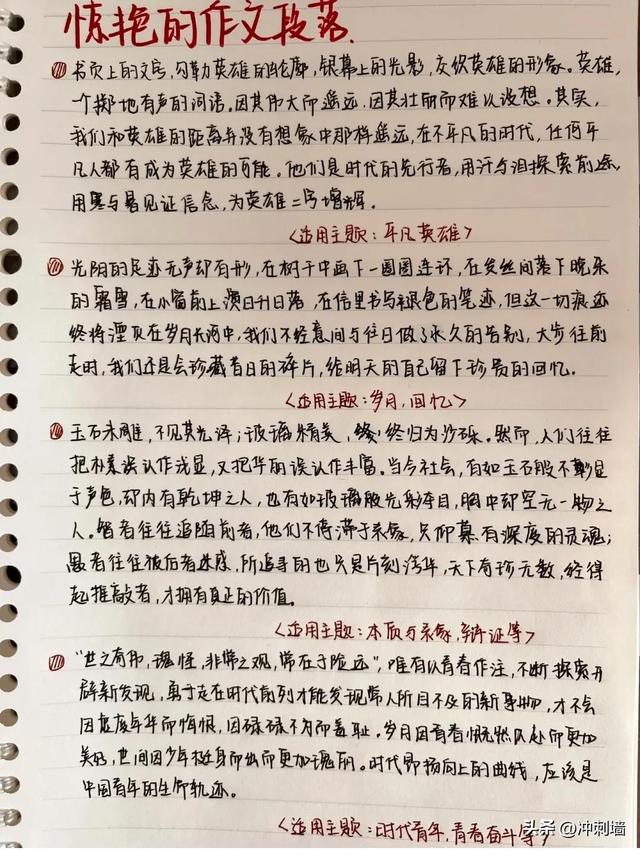 惊艳的作文段落
书页上的文字,勾勒英雄的轮廓,银幕上的光影,交织英雄的形象。英雄,
一个掷地有声的词语。因其伟大而遥远,因其壮丽而难以设想。其实,
我们和英雄的距离并没有想象中那样遥远,在不平凡的时代,任何平
凡人都有成为英雄的可能。他们是时代的先行者,用汗与泪探索前途,
用寒与暑见证信念,为英雄二字增辉。
<适用主题:平凡英雄>
光阴的足迹无声却有形,在树干中画下一圈圈连环,在发丝间落下晚来
的霜雪,在小窗前上演日升日落,在信里书写褪色的笔迹,但这一切痕迹
终将湮灭在岁月长河中,我们不经意间与往日做了永久的告别,大步往前
走时,我们还是会珍藏昔日的碎片,给明天的自己留下珍贵的回忆。
<适用主题:岁月,回忆>
玉石未雕,不见其光泽;玻璃精美,终归为沙砾。然而,人们往往
把朴素误认作浅显,又把华丽误认作丰富。当今社会,有如玉石般不彰显
于声色,却内有乾坤之人,也有如玻璃般光彩夺目,胸中却空无一物之
人。智者往往追随前者,他们不停滞于表象,只仰慕有深度的灵魂;
愚者往往被后者迷惑,所追寻的也只是片刻浮华,天下奇珍无数,经得
起推敲者,才拥有真正的价值。
<适用主题:本质与表象,辩证等>
“世之奇伟,瑰怪,非常之观,常在于险远”,唯有以青春作注,不断探索开
辟新发现,勇于走在时代前列才能发现常人所目不及的新事物,才不会
因虚度年华而悔恨,因碌碌不为而羞耻。岁月因青春慨然以赴而更加
美好,世间因少年挺身而出而更加瑰丽。时代昂扬向上的曲线,应该是
中国青年的生命轨迹。
<适用主题:时代青年,青春奋斗等>
头条 @冲刺墙